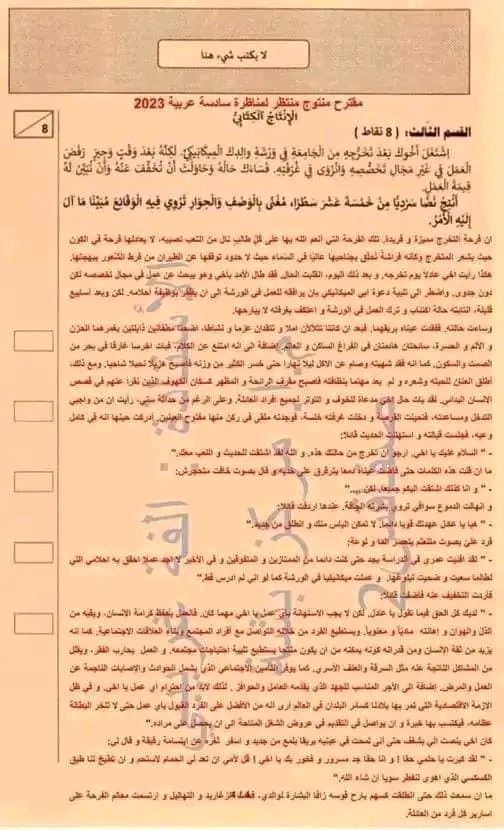 لا يكتب شيء هنا
مقترح منتوج منتظر لمناظرة سادسة عربية 2023
الإنتاج الكتابي
القسم الثالث: ( 8 نقاط )
8
اشتغل أخوك بعد تخرجه من الجامعة في ورشة والدك الميكانيكي. لكنه بعد وقت وجيز رفض
العمل في غير مجال تخصصه وانزوى في غرفته. فساءك حاله وحاولت أن تخفف عنه وأن تبين له
قيمة العمل.
أنتج نصا سرديا من خمسة عشر سطرا، مغنى بالوصف والحوار تروي فيه الوقائع مبينا ما آل
إليه الأمر.
ان فرحة التخرج مميزة و فريدة. تلك الفرحة التي أنعم الله بها على كل طالب نال من التعب نصيبه، لا يعادلها فرحة في الكون
حيث يشعر المتخرج وكأنه فراشة تحلق بجناحيها عاليا في السماء حيث لا حدود توقفها عن الطيران من فرط الشعور ببهجتها.
هكذا رأيت أخي عادلا يوم تخرجه. و بعد ذلك اليوم، انقلبت الحال. فقد طال الأمد بأخي وهو يبحث عن عمل في مجال تخصصه لكن
دون جدوى. واضطر الى تلبية دعوة ابي الميكانيكي بان يرافقه للعمل في الورشة الى ان يظفر بوظيفة أحلامه. ولكن وبعد أسابيع
قليلة، انتابته حالة اكتئاب و ترك العمل في الورشة و اعتكف بغرفته لا يبارحها.
وساءت حالته، ففقدت عيناه بريقهما. فبعد ان كانتا تتلألآن املا و تتقدان عزما و نشاطا، اضحتا منطفئتين ذابلتين يغمرهما الحزن
و الالم و الحسرة، سانحتان هائمتان في الفراغ الساكن و العالم. إضافة الى انه امتنع عن الكلام، فبات اخرسا غارقا في بحر من
الصمت والسكون. كما انه فقد شهيته وصام عن الاكل ليلا نهارا حتى خسر الكثير من وزنه فأصبح هزيلا نحيلا شاحبا. ومع ذلك،
أطلق العنان للحيته وشعره و لم يعد مهتما بنظافته فأصبح مقرف الرائحة و المظهر كسكان الكهوف الذين نقرأ عنهم في قصص
الانسان البدائي. لقد بات حال اخي مدعاة للخوف و التوتر لجميع أفراد العائلة. وعلى الرغم من حداثة سني، رأيت ان من واجبي
التدخل ومساعدته، فتحينت الفرصة و دخلت غرفته خلسة، فوجدته ملقى في ركن منها مفتوح العينين. أدركت حينها انه في كامل
وعيه، فجلست قبالته و استهللت الحديث قائلا:
- " السلام عليك يا اخي. ارجو ان تخرج من حالتك هذه. و الله لقد اشتقت للحديث و اللعب معك."
ما ان قلت هذه الكلمات حتى فاضت عيناه دمعا يترقرق على خديه و قال بصوت خافت متحجرش:
- " و انا كذلك اشتقت اليكم جميعا. لكن ...."
و انهالت الدموع سواقي تروي بشرته الجافة. عندها اردفت قائلا:
- "هيا يا عادل عهدتك قويا دائما. لا تمكن اليأس منك و انطلق من جديد."
فرد علي بصوت متلعثم يعتصر الما و لوعة:
- " لقد افنيت عمري في الدراسة بجد حتى كنت دائما من الممتازين و المتفوقين و في الأخير لا اجد عملا احقق به احلامي التي
لطالما سعيت و ضحيت لبلوغها. و عملت ميكانيكيا في الورشة كما لو اني لم ادرس قط"
فاردت التخفيف عنه فأضفت قائلا:
- " لديك كل الحق فيما تقول يا عادل. لكن لا يجب الاستهانة بأي عمل يا اخي مهما كان. فالعمل يحفظ كرامة الانسان، ويقيه من
الذل والهوان و اهانته ماديا و معنويا. ويستطيع الفرد من خلاله التواصل مع أفراد المجتمع وبناء العلاقات الاجتماعية. كما انه
يزيد من ثقة الإنسان ومن قدراته كونه يمكنه من ان يكون منتجا يستطيع تلبية احتياجات مجتمعه. و العمل يحارب الفقر، ويقلل
من المشاكل الناتجة عنه مثل السرقة والعنف الأسري. كما يوفر التأمين الاجتماعي الذي يشمل الحوادث والإصابات الناجمة عن
العمل والمرض. إضافة الى الأجر المناسب للجهد الذي يقدمه العامل والحوافز. لذلك لابد من احترام أي عمل يا اخي. و في ظل
الازمة الاقتصادية التي تمر بها بلادنا كسائر البلدان في العالم أرى انه من الأفضل على الفرد القبول بأي عمل حتى لا تنخر البطالة
عظامه، فيكتسب بها خبرة و ان يواصل في التقديم في عروض الشغل المتاحة الى ان يحصل على مراده."
كان اخي ينصت الي بشغف حتى أنى لمحت في عينيه بريقا يلمع من جديد و اسفر ثغره عن ابتسامة رقيقة و قال لي:
- " لقد كبرت يا حلمي حقا ! و انا حقا جد مسرور و فخور بك يا اخي ! قل لأمي ان تعد لي الحمام لاستحم و ان تطبخ لنا طبق
الكسكسي الذي اهوى لنفطر سويا ان شاء الله."
ما ان سمعت ذلك حتى انطلقت كسهم بارح قوسه زافا البشارة لوالدي. فعلت الزغاريد و التهاليل و ارتسمت معالم الفرحة على
اسارير كل فرد من العائلة.